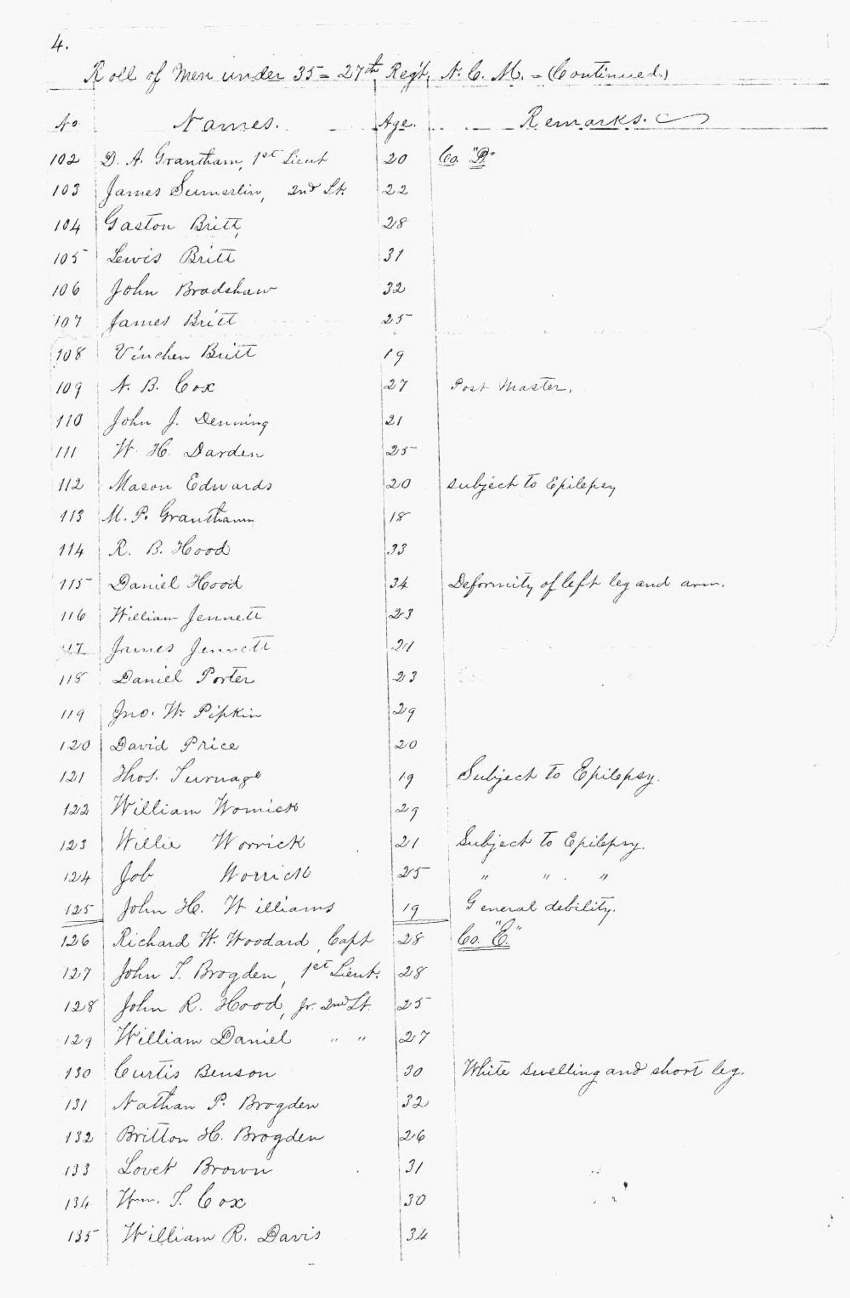 4.
Roll of Men under 35 = 27th Regt, N. C. M. = (Continued.)
No Names. Age. Remarks.
102 D. A. Grantham, 1st Lieut 20 Co. "B"
103 James Sumerlin, 2nd Lt. 22
104 Gaston Britt, 28
105 Lewis Britt 31
106 John Bradshaw 32
107 James Britt 25
108 Vinchen Britt 19
109 N. B. Cox 27 Post Master.
110 John J. Denning 21
111 W. H. Darden 25
112 Mason Edwards 20 subject to Epilepsy
113 M. P. Grantham 18
114 R. B. Hood 33
115 Daniel Hood 34 Deformity of left leg and arm.
116 William Jennett 23
117 James Jennett 21
118 Daniel Porter 23
119 Jno. W. Pipkin 29
120 David Price 20
121 Thos. Turnage 19 Subject to Epilepsy.
122 William Wornick 29
123 Willie Worrick 21 Subject to Epilepsy.
124 Job Worrick 25 " " "
125 John H. Williams 19 General debility.
126 Richard W. Woodard, Capt 28 Co. "E"
127 John T. Brogden, 1st Lieut. 28
128 John R. Hood, Jr. 2nd Lt. 25
129 William Daniel " " 27
130 Curtis Benson 30 White swelling and short leg.
131 Nathan P. Brogden 32
132 Britton H. Brogden 26
133 Lovet Brown 31
134 Wm. T. Cox 30
135 William R. Davis 34